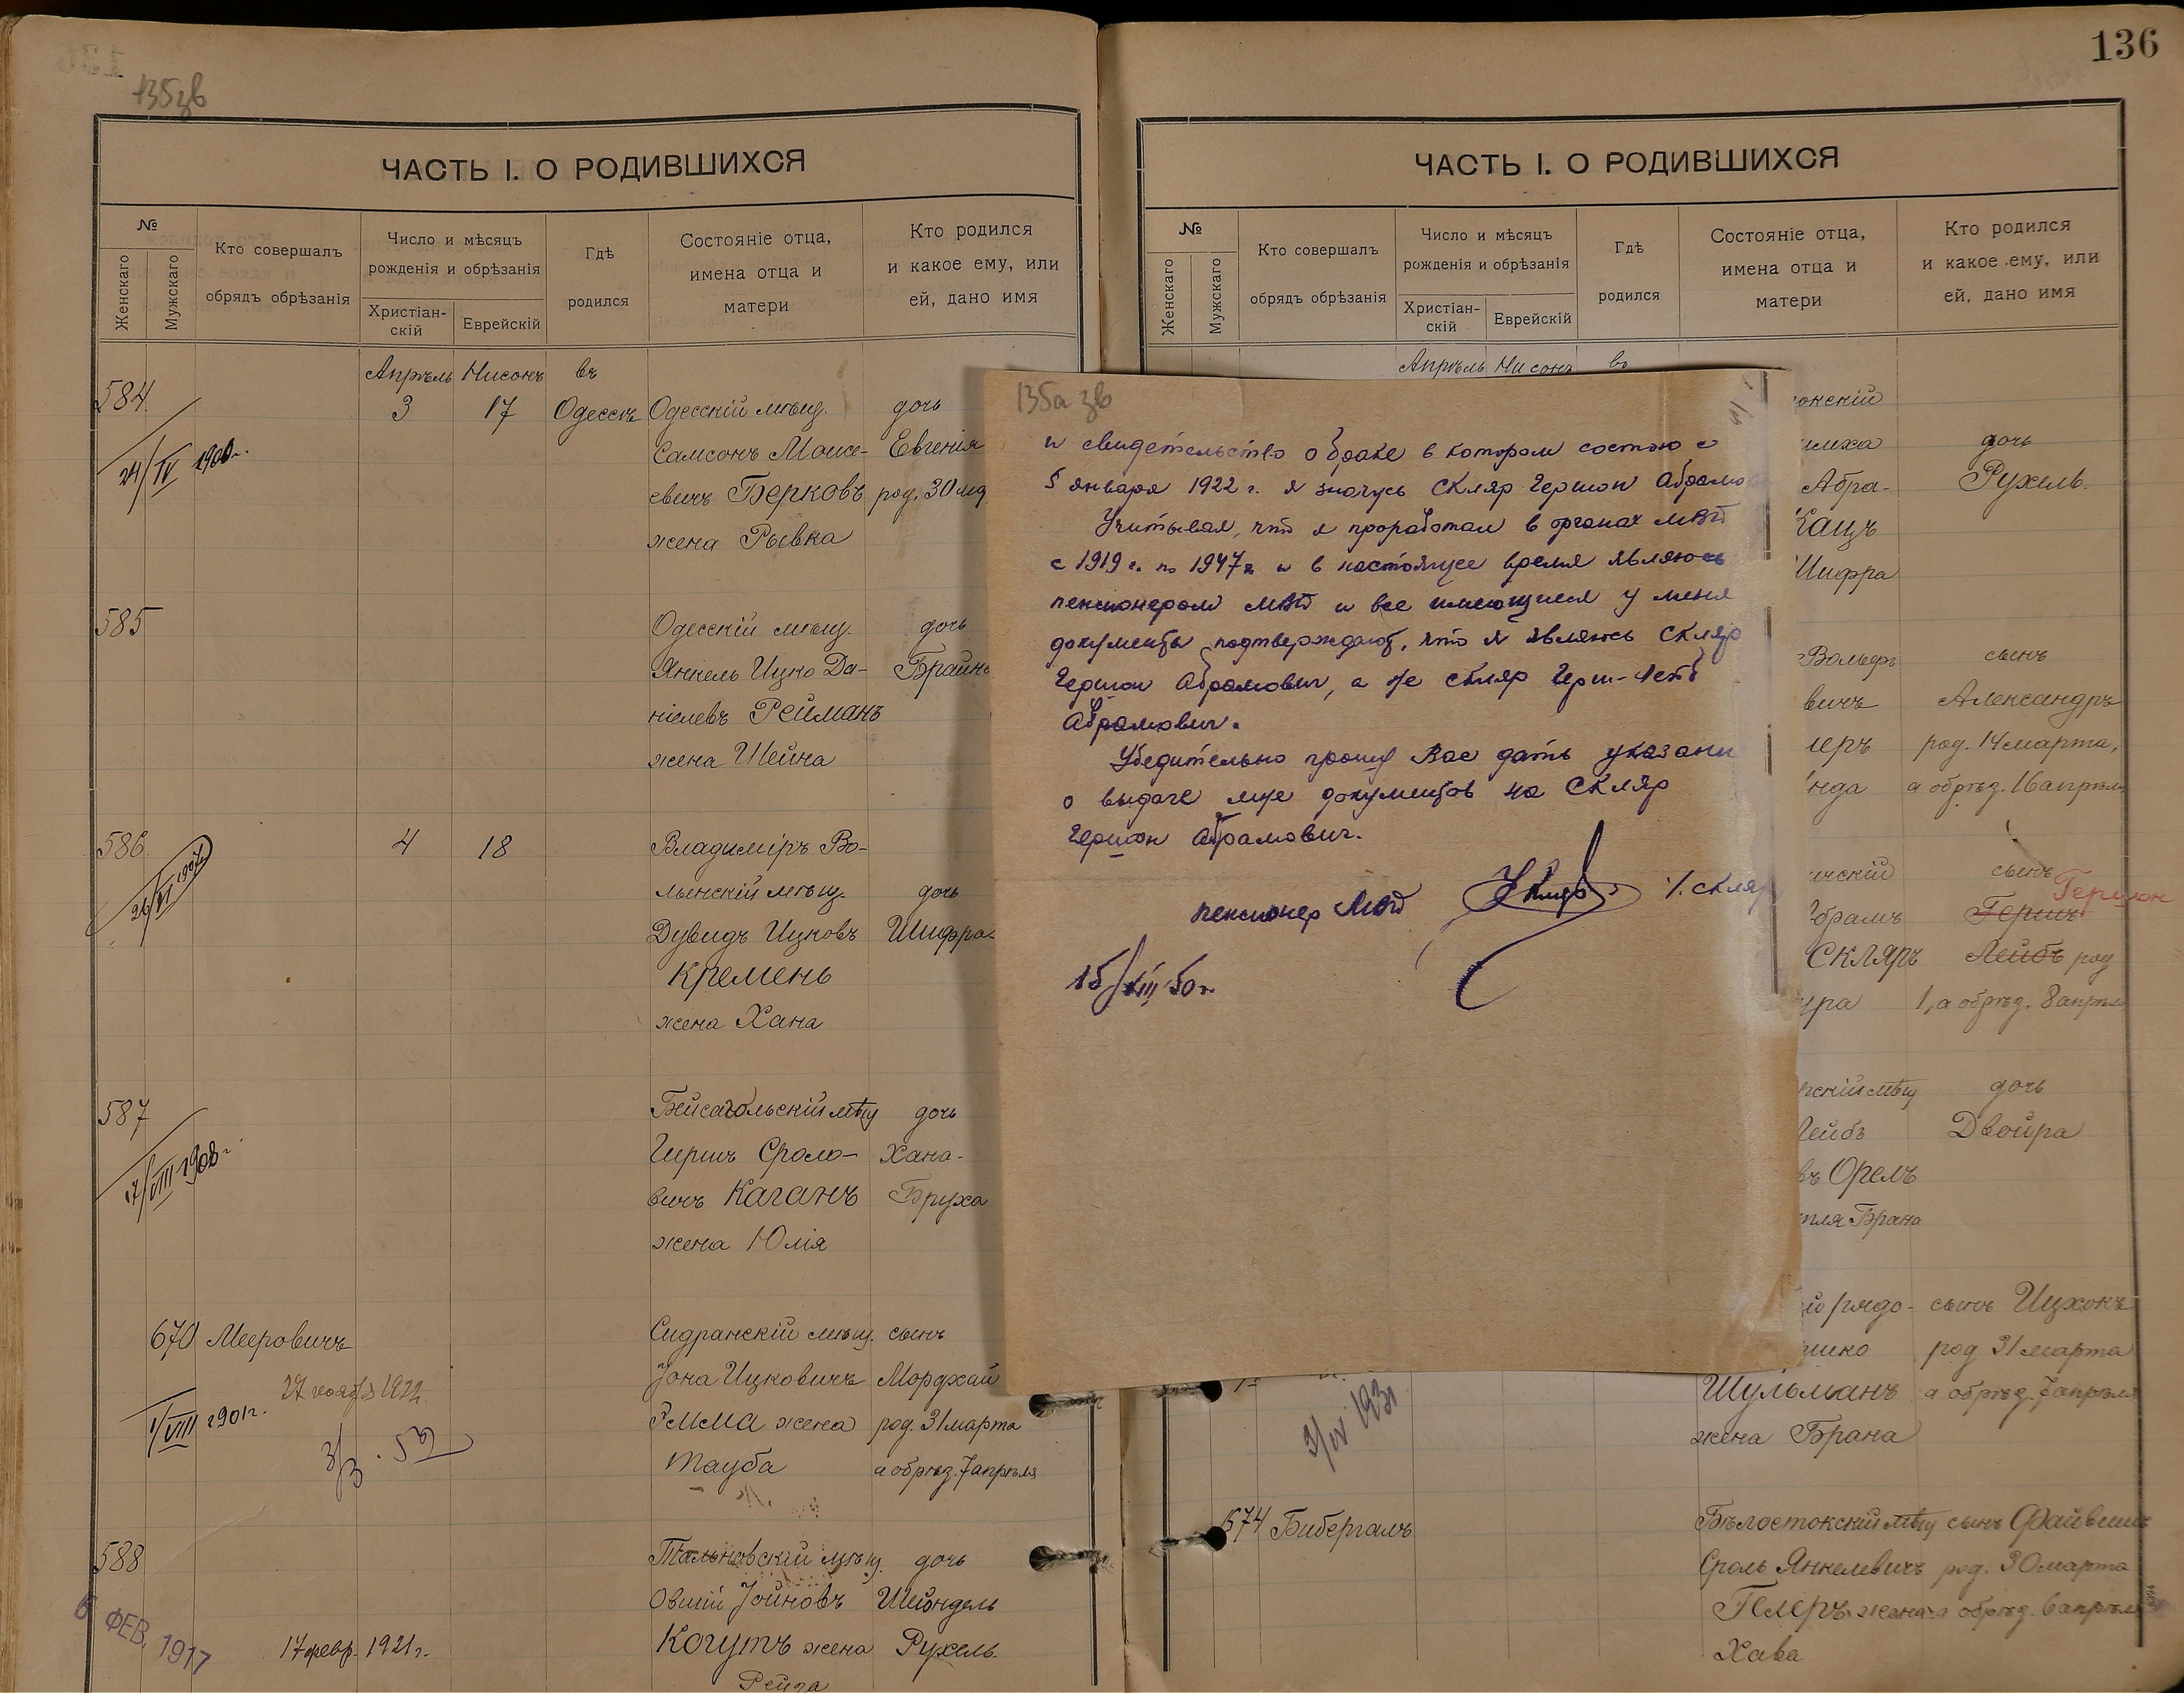 135зв
ЧАСТЬ I. О РОДИВШИХСЯ
№
Женскаго
Мужскаго
Кто совершалъ
обрядъ обрѣзанія
Число и мѣсяцъ
рожденія и обрѣзанія
Христіан-
скій
Еврейскій
Гдѣ
родился
Состояніе отца,
имена отца и
матери
Кто родился
и какое ему, или
ей, дано имя
Апрѣль Нисонъ въ
584 3 17 Одессѣ Одесскій мѣщ. дочь
24/IV 1900г. Самсонъ Моисе- Евгенія
евичъ Берковъ род. 30 мар
жена Рывка
585 Одесскій мѣщ. дочь
Янкель Ицко Да- Брайна
ніелевъ Рейманъ
жена Шейна
586 4 18 Владиміръ Во-
лынскій мѣщ. дочь
Дувидъ Ицковъ Шифра
Кремень
жена Хана
587 Бейсагольскій мѣщ дочь
17/VIII 1908г. Гершъ Сроло- Хана-
вичъ Каганъ Бруха
жена Юлія
670 Мееровичъ Сидранскій мѣщ. сынъ
27 ноября 1922 Іона Ицковичъ Мордхай
1/VIII 1901г. жена род. 31 марта
Тауба а обрѣз. 7 апрѣля
588 Тальновскій мѣщ. дочь
Овшій Іойновъ Шейндель
6 ФЕВ. 1917 17 февр. 1921г. Когутъ жена Рухель
Рейза
136
ЧАСТЬ I. О РОДИВШИХСЯ
№
Женскаго
Мужскаго
Кто совершалъ
обрядъ обрѣзанія
Число и мѣсяцъ
рожденія и обрѣзанія
Христіан-
скій
Еврейскій
Гдѣ
родился
Состояніе отца,
имена отца и
матери
Кто родился
и какое ему, или
ей, дано имя
Апрѣль Нисонъ въ
135а зв
и свидетельство о браке в котором состою с
5 января 1922 г. я значусь Скляр Гершон Абрамо
Учитывая, что я проработал в органах МВД
с 1919 г. по 1947 г. и в настоящее время являюсь
пенсионером МВД и все имеющиеся у меня
документы подтверждают, что я являюсь Скляр
Гершон Абрамович, а не Скляр Герш-Лейб
Абрамович.
Убедительно прошу Вас дать указани
о выдаче мне документов на Скляр
Гершон Абрамович.
пенсионер МВД Скляр
онскій
дочь
Абра- Рухель.
Кацъ
Шифра
Вольфъ сынъ
вичъ Александръ
леръ род. 14 марта,
нда а обрѣз. 16 апрѣля
ическій сынъ Гершон
брамъ Гершъ
Скляръ Лейбъ род
1, а обрѣз. 8 апрѣля
скій мѣщ дочь
Лейбъ Двойра
въ Орелъ
тля Брана
й рядо- сынъ Ицхокъ
шко род 31 марта
Шульманъ а обрѣз. 7 апрѣля
3/IV 1931 жена Брана
674 Бибергалъ Бѣлостокскій мѣщ сынъ Файвель
Сроль Янкелевичъ род. 30 марта
Гелеръ жена а обрѣз. 6 апрѣля
Хава